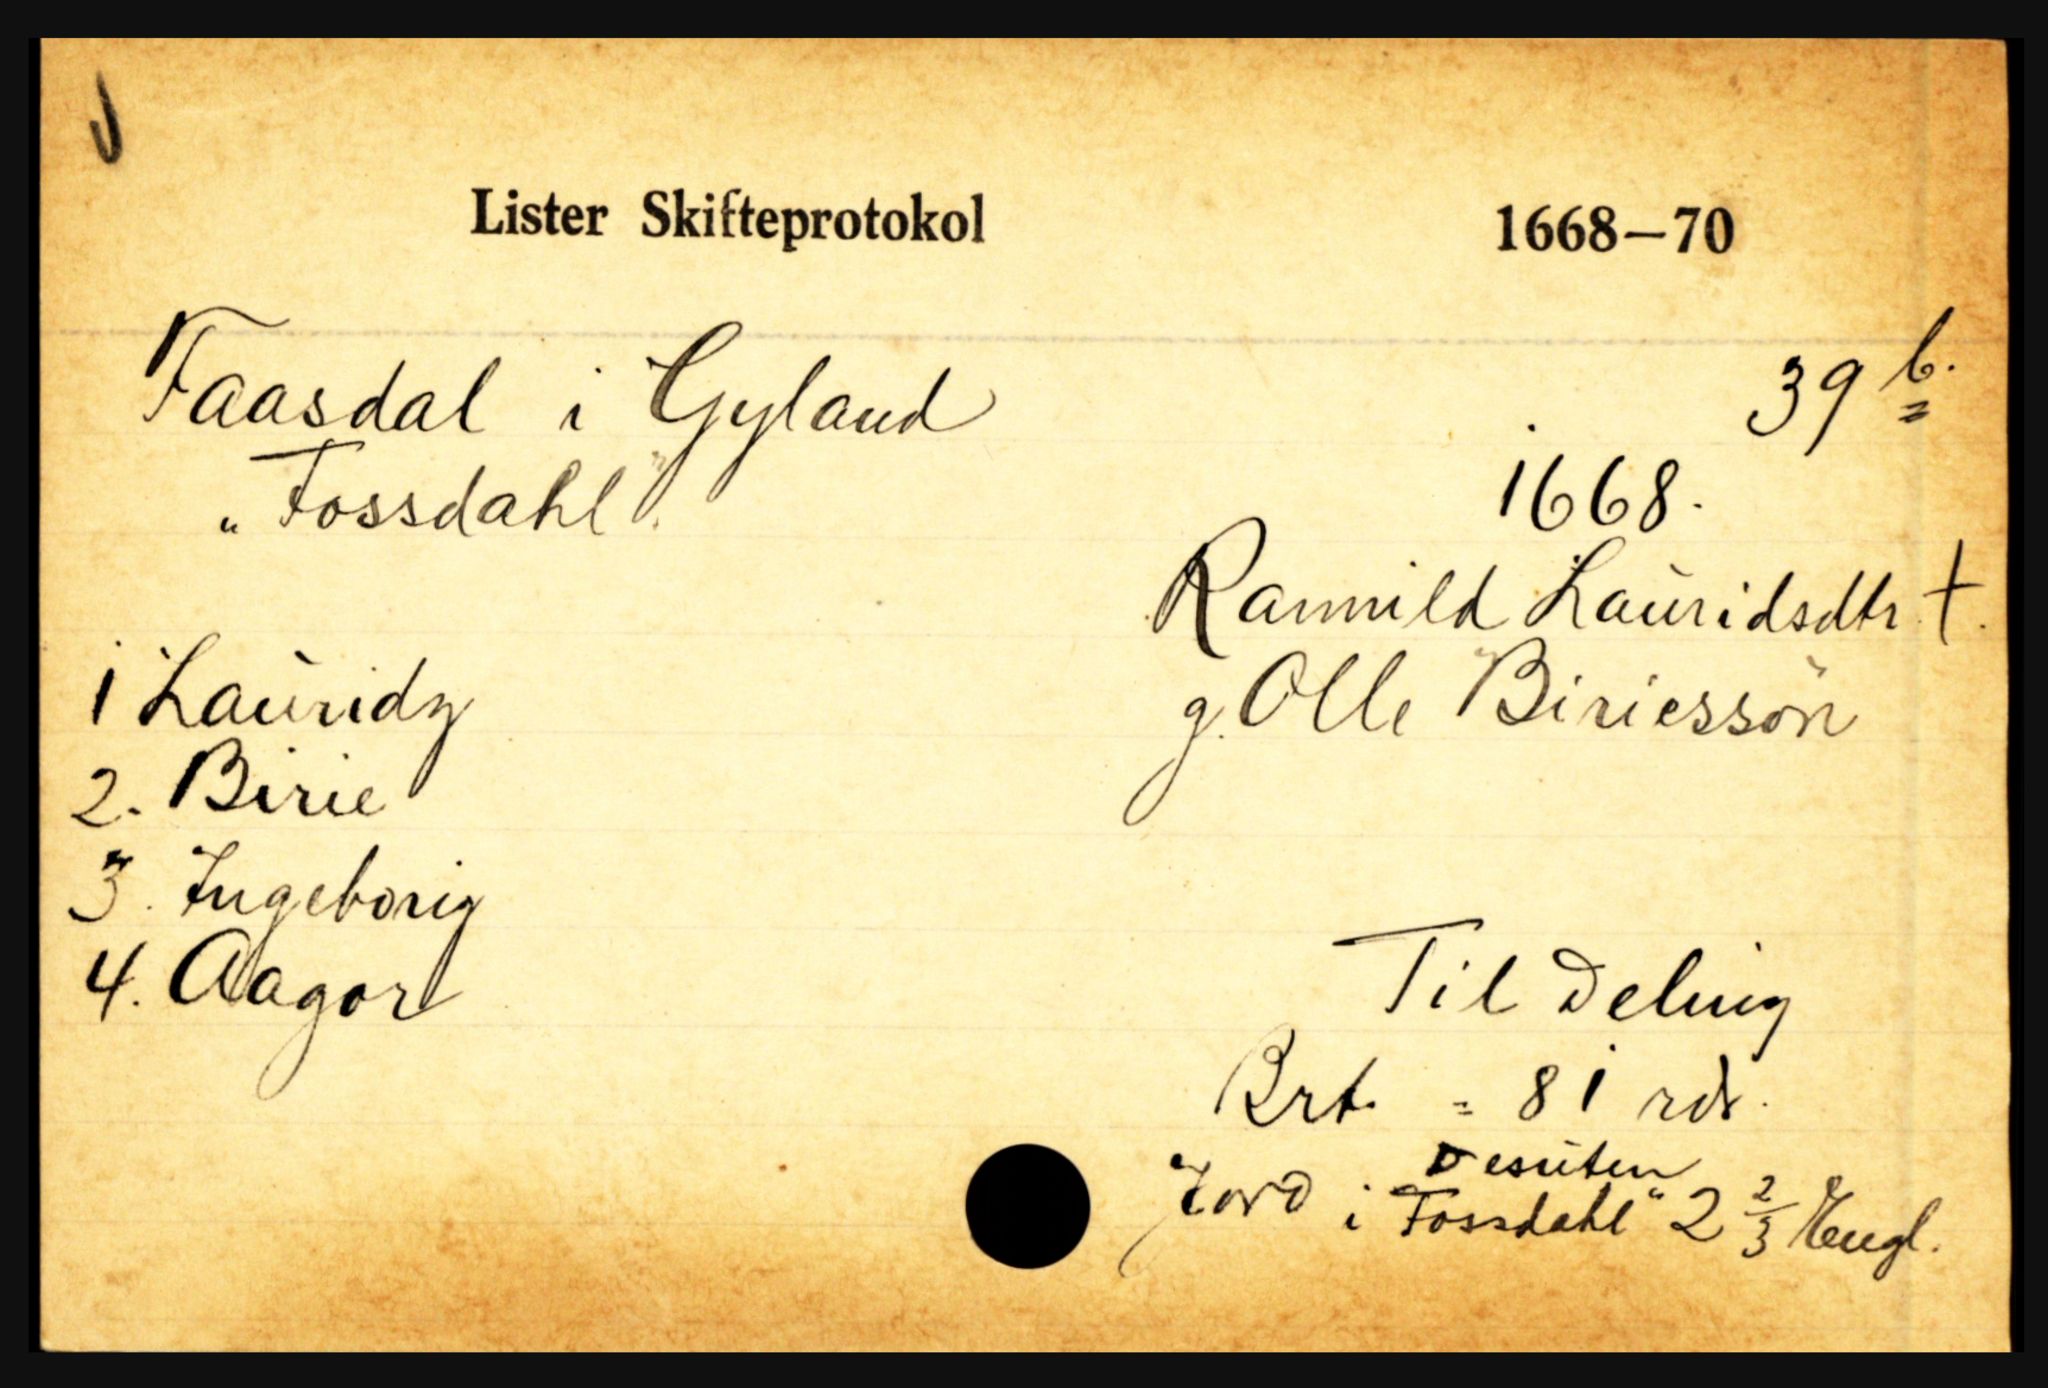 Lister Skifteprotokol 1668—70
Faasdal i Gyland 39 b.
"Fossdahl"
1668.
Rannild Lauridsdtr †.
g. Olle Biriessøn
1 Lauridz
2. Birie
3. Ingeborig
4. Aagor
Til Deling
Brt. = 81 rdr.
Desuten
Jord i Fossdahl" 2 2/3 Engl.